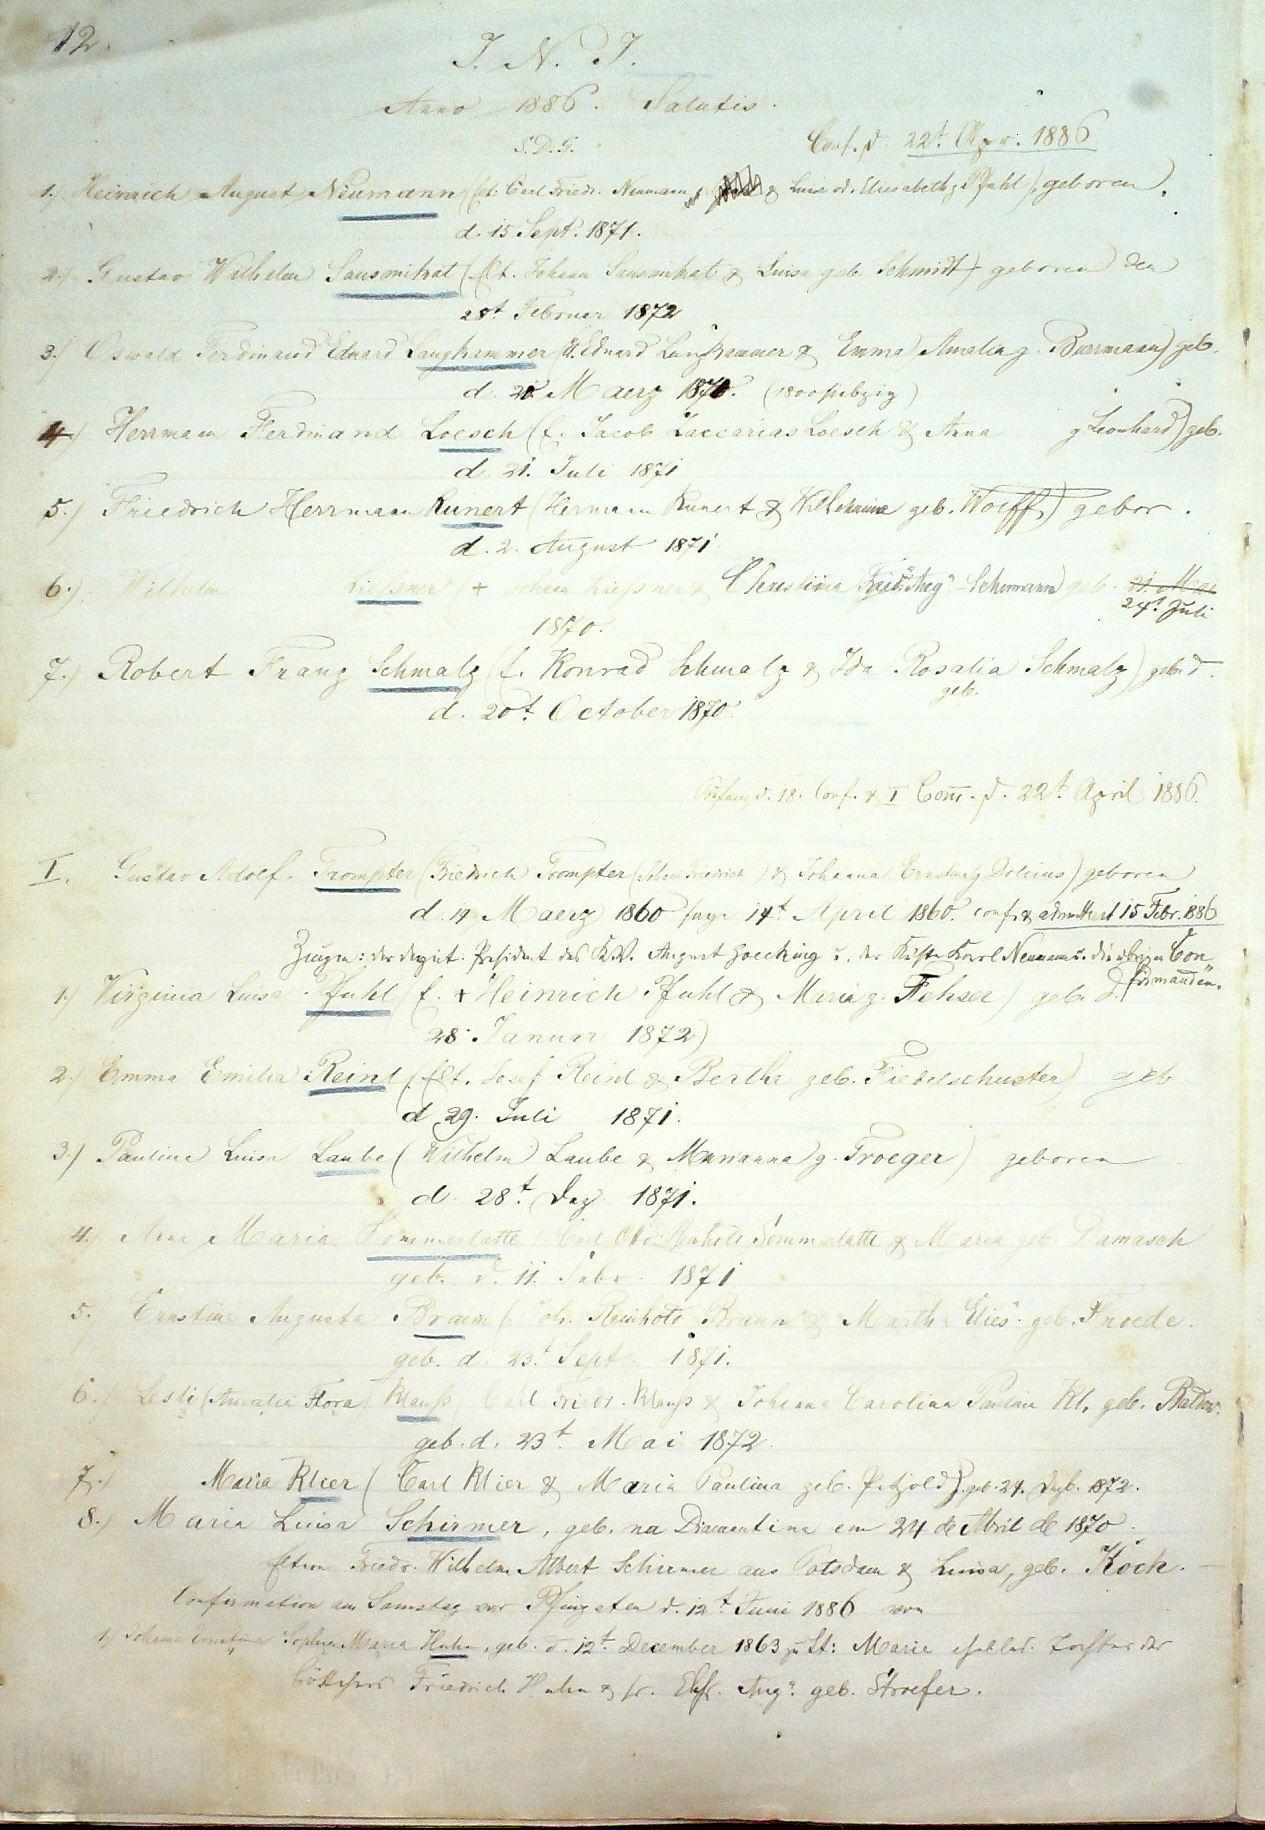 12.
J. N. J.
Anno 1886. Salutis.
S. D. G.
Conf. d. 22t. Apr. 1886
1.) Heinrich August Neumann (flt. Carl Friedr. Neumann & Elisabeth g. Pfuhl) geboren
d. 15 Sept. 1871.
2.) Gustav Wilhelm Sausmikat (flt. Johann Sausmikat & Luisa geb. Schmidt) geboren den
28t. Februar 1872
3.) Oswald Ferdinand Eduard Langhammer (f. Eduard Langhammer & Emma Amelia g. Burrmann) geb.
d. Maerz 1870. (1800siebzig)
4.) Herrmann Ferdinand Loesch (f. Jacob Zaccarias Loesch & Anna g. Leonhard) geb.
d. 21. Juli 1871
5.) Friedrich Herrmann Kunert (Hermann Kunert & Wilhelmine geb. Wolff) gebor.
d. 2. August 1871
6.) Wilhelm Liessner + Johann Liessner & Christina Schumann) geb. 21. Mai
24t. Juli
1870.
7.) Robert Franz Schmalz (f. Konrad Schmalz & Ida Rosalia Schmalz) geb. d.
geb.
d. 20t. October 1870.
d. 18. Conf. & I Com. d. 22t. April 1886.
I. Gustav Adolf Trompter (Friedrich Trompter (Johann Friedrich) & Johanna geboren
d. Maerz 1860 14t April 1860. conf. & admittirt 15 Febr. 1886
Zeugen: der Praesident des K.V. August u. der Küster Karl Neumann u. die übrigen Con
firmanden.
1.) Virginia Luisa Pfuhl (f. + Heinrich Pfuhl & Maria g. Fehser) geb. d.
28. Januar 1872)
2.) Emma Emilia Reinl (flt. Josef Reinl & Bertha geb. Fiedelschuster) geb
d 29. Juli 1871.
3.) Paulina Luisa Laube (Wilhelm Laube & Marianna g. Troeger) geboren
d. 28t. Dez. 1871.
4.) Anna Maria Sommerlatte (Carl Otto Sommerlatte & Maria geb. Damasch
geb. d. 11. 1871
5. Ernstina Augusta Braun (Joh. Reinhold Braun & Martha Elies. geb. Froede.
geb. d. 23t Sept. 1871.
6.) (Amalia Flora) Klauss (Carl Friedr. Klauss & Johanna Carolina Paulina Kl. geb.
geb. d. 23t. Mai 1872.
7.) Maria Klier (Carl Klier & Maria Paulina geb. Petzold) geb. 24. Dezb. 1872.
8.) Maria Luisa Schirmer, geb. na Diamantina em 24 de Abril de 1870.
Eltern Friedr. Wilhelm Albert Schirmer aus Potsdam & Luisa, geb. Koch. —
Confirmation am Samstag vor Pfingsten d. 12t Juni 1886 von
1.) Johanna Ernstina Sophia Maria Huhn, geb. d. 12t. December 1863 zu St: Marie Tochter der
Friedrich Huhn & sr. Ehfr. Aug. geb. Stroefer.